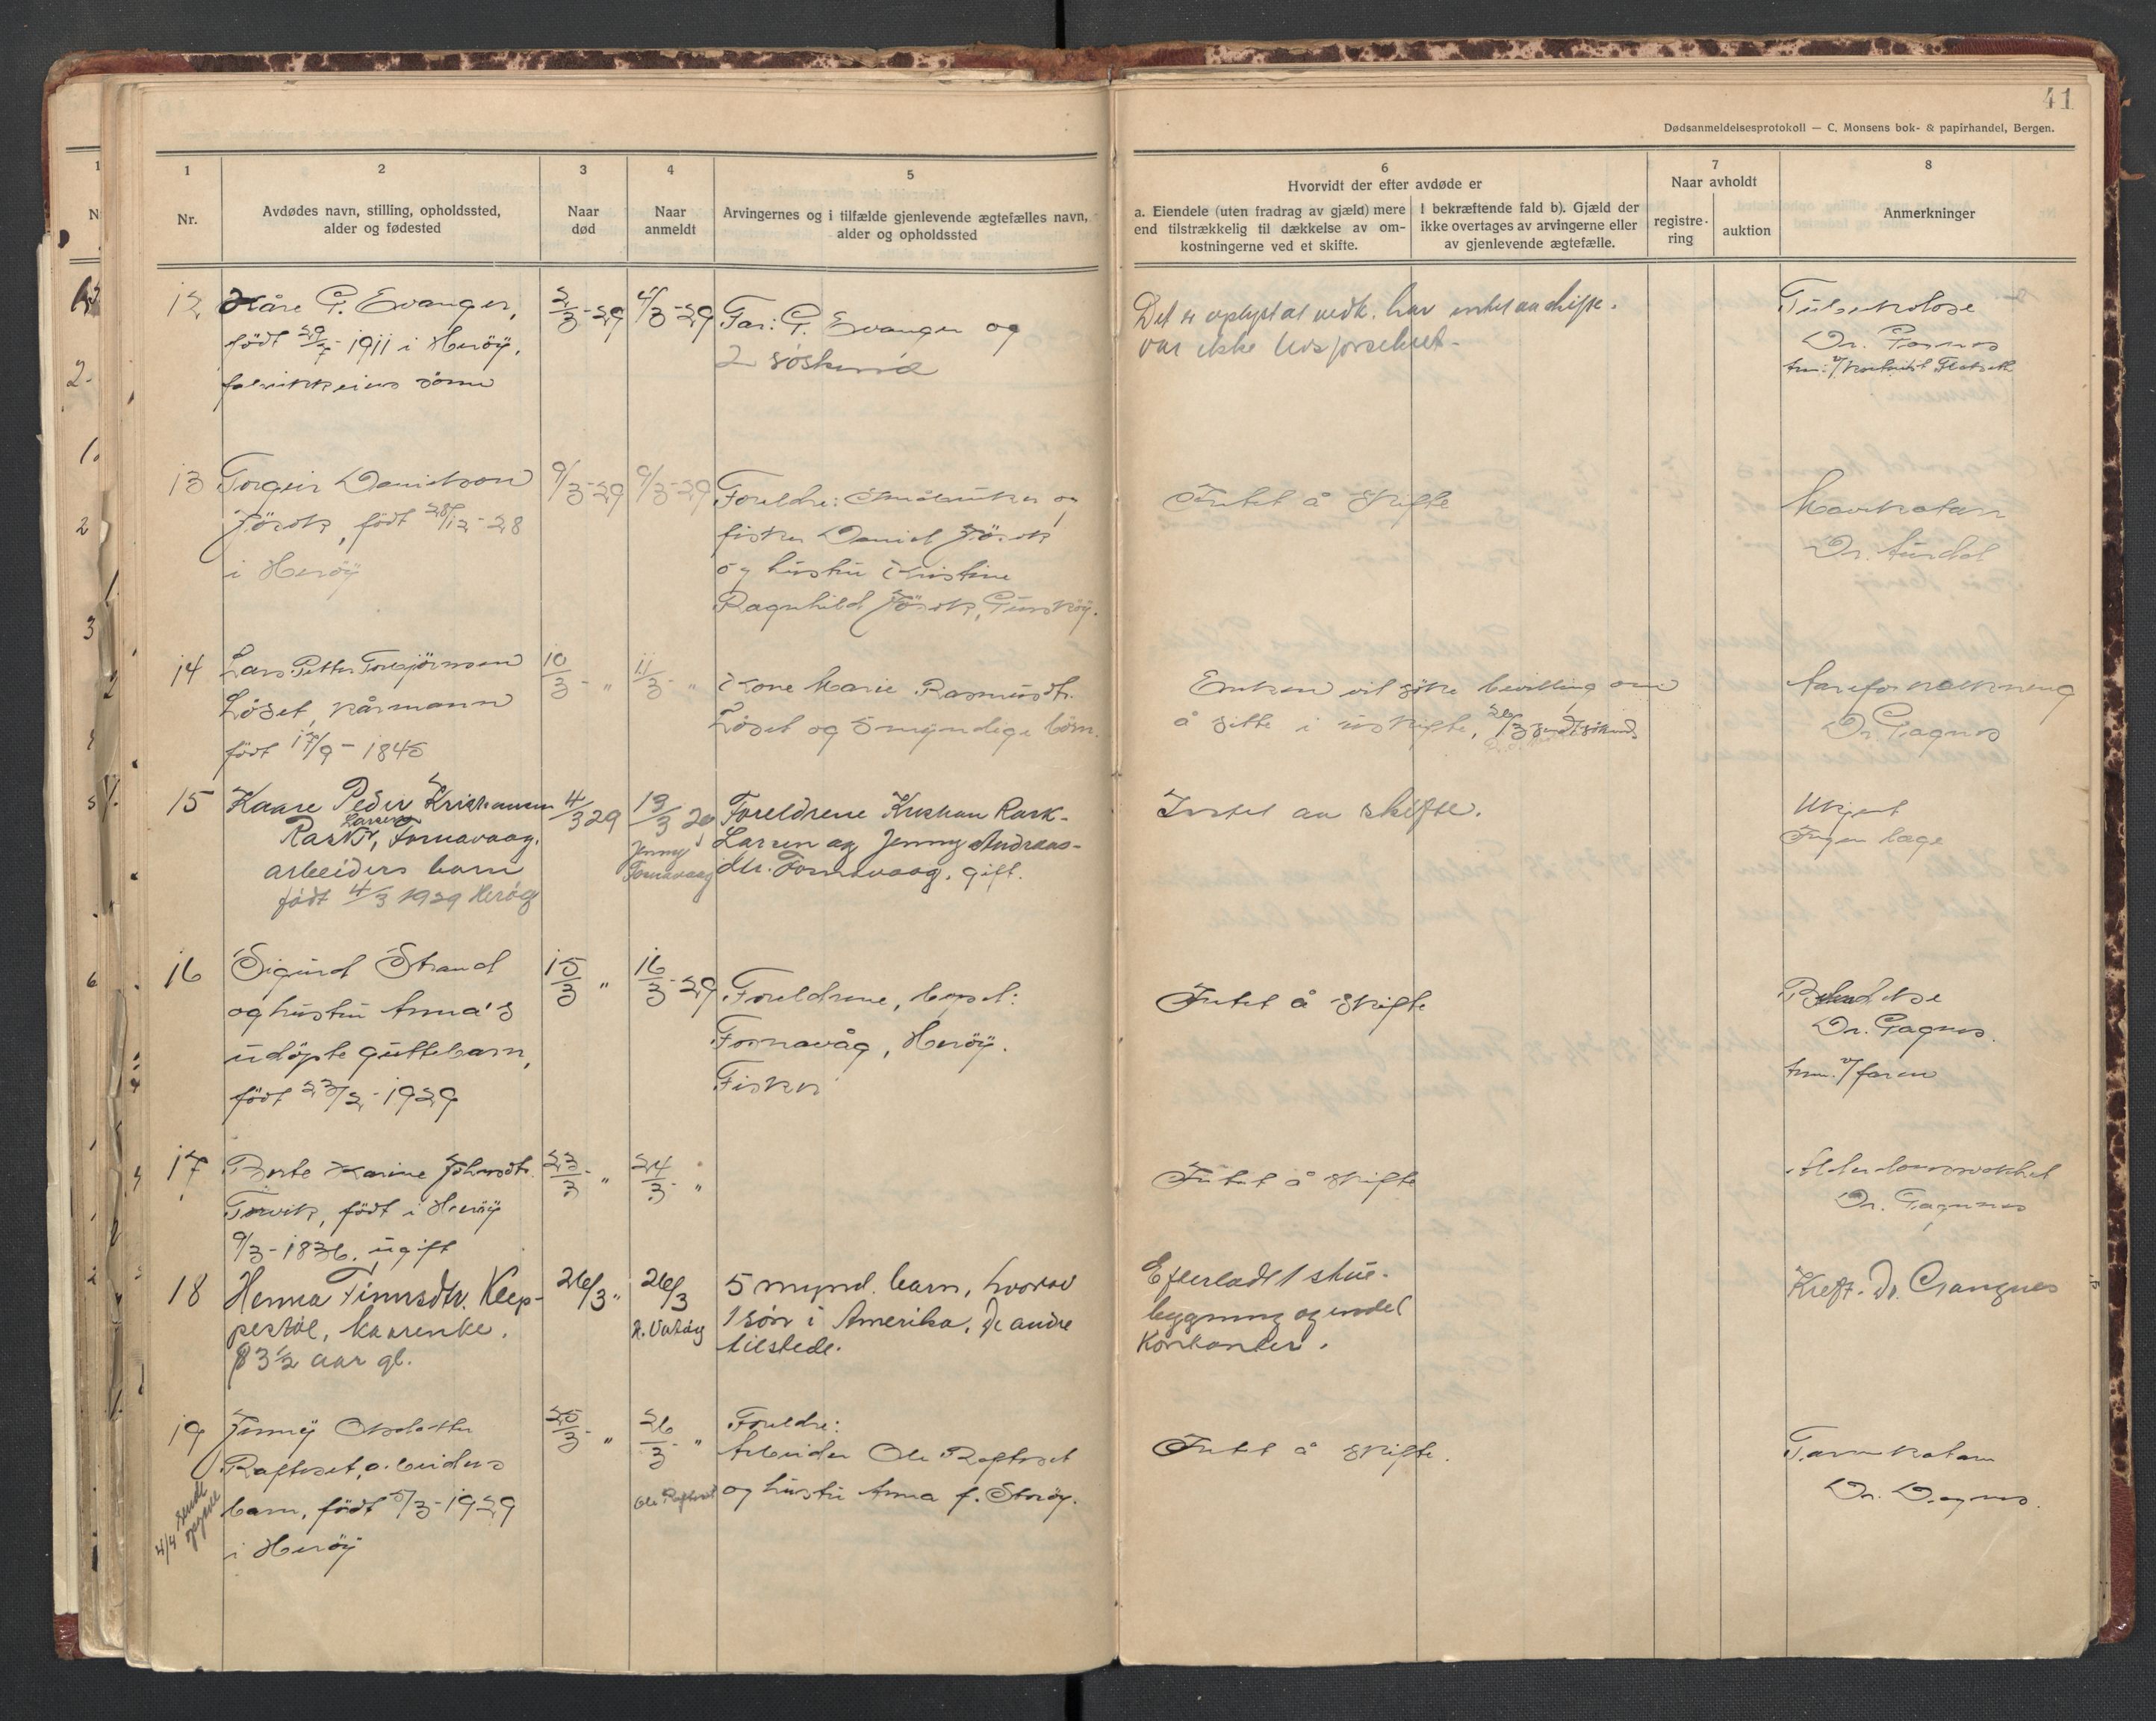 41
Dødsanmeldelsesprotokoll — C. Monsens bok- & papirhandel, Bergen.
1
2
3
4
5
6
7
8
Nr.
Avdødes navn, stilling, opholdssted,
alder og fødested
Naar
død
Naar
anmeldt
Arvingernes og i tilfælde gjenlevende ægtefælles navn,
alder og opholdssted
Hvorvidt der efter avdøde er
a. Eiendele (uten fradrag av gjæld) mere
end tilstrækkelig til dækkelse av om-
kostningerne ved et skifte.
I bekræftende fald b). Gjæld der
ikke overtages av arvingerne eller
av gjenlevende ægtefælle.
Naar avholdt
registre-
ring
auktion
Anmerkninger
12
Kåre G. Evanger,
født 29/7 1911 i Herøy,
sønn
2/3-29
4/3-29
Far: G. Evanger og
2 søskend
Det er oplyst at vedk. har intet aa skifte.
var ikke livsforsikret.
Tuberkulose
Dr.
13
Torgeir Danielson
Jøsok, født 28/12-28
i Herøy
9/3-29
9/3-29
Foreldre: Småbruker og
fisker Daniel Jøsok
og hustru Kristine
Ragnhild Jøsok, Gurskøy.
Intet å skifte
Dr. Aurdal
14
Lars Petter Torbjørnsen
Løset, kårmann
født 17/9-1845
10/3- "
11/3- "
Kone Marie Rasmusdtr.
Løset og 5 myndige børn.
Enken vil søke bevilling om
å sitte i uskifte, 26/3
Aareforkalkning
Dr. Gagnes
15
Kaare Peder Kristiansen
Larsen
Rask, Fosnavaag.
arbeiders barn
født 4/3 1929 Herøy
4/3 29
13/3 29
Jenny
Fosnavaag
Foreldrene Kristian Rask-
Larsen og Jenny Andreas-
dtr. Fosnavaag, gift.
Intet aa skifte.
Ukjent
Ingen læge
16
Sigurd Strand
og hustru Anna's
udøpte guttebarn,
født 23/2-1929
15/3 "
16/3-29
Foreldrene, bopel:
Fosnavåg, Herøy.
Fisker
Intet å skifte
Dr. Gagnes.
Anm. v/ faren
17
Berte Karine Johnsdtr.
Torvik, født i Herøy
9/3-1836, ugift
23/3- "
24/3- "
Intet å skifte
Alderdomssvakhet
Dr. Gagnes
18
Henna Finnsdtr. Klep-
pestøl, kaarenke.
83½ aar gl.
26/3 "
26/3
5 mynd. barn, hvorav
1 sønn i Amerika. De andre
tilstede.
Efterladt 1 stue-
bygning og endel
Kontanter.
Kreft. Dr. Gangnes
19
Jenny Olsdatter
Raftset, arbeiders
barn, født 5/3-1929
i Herøy
4/4 sendt
opgave
25/3- "
26/3- "
Ole Raftset
Foreldre:
Arbeider Ole Raftset
og hustru Anna f. Storøy.
Intet å skifte.
Tarmkatarr